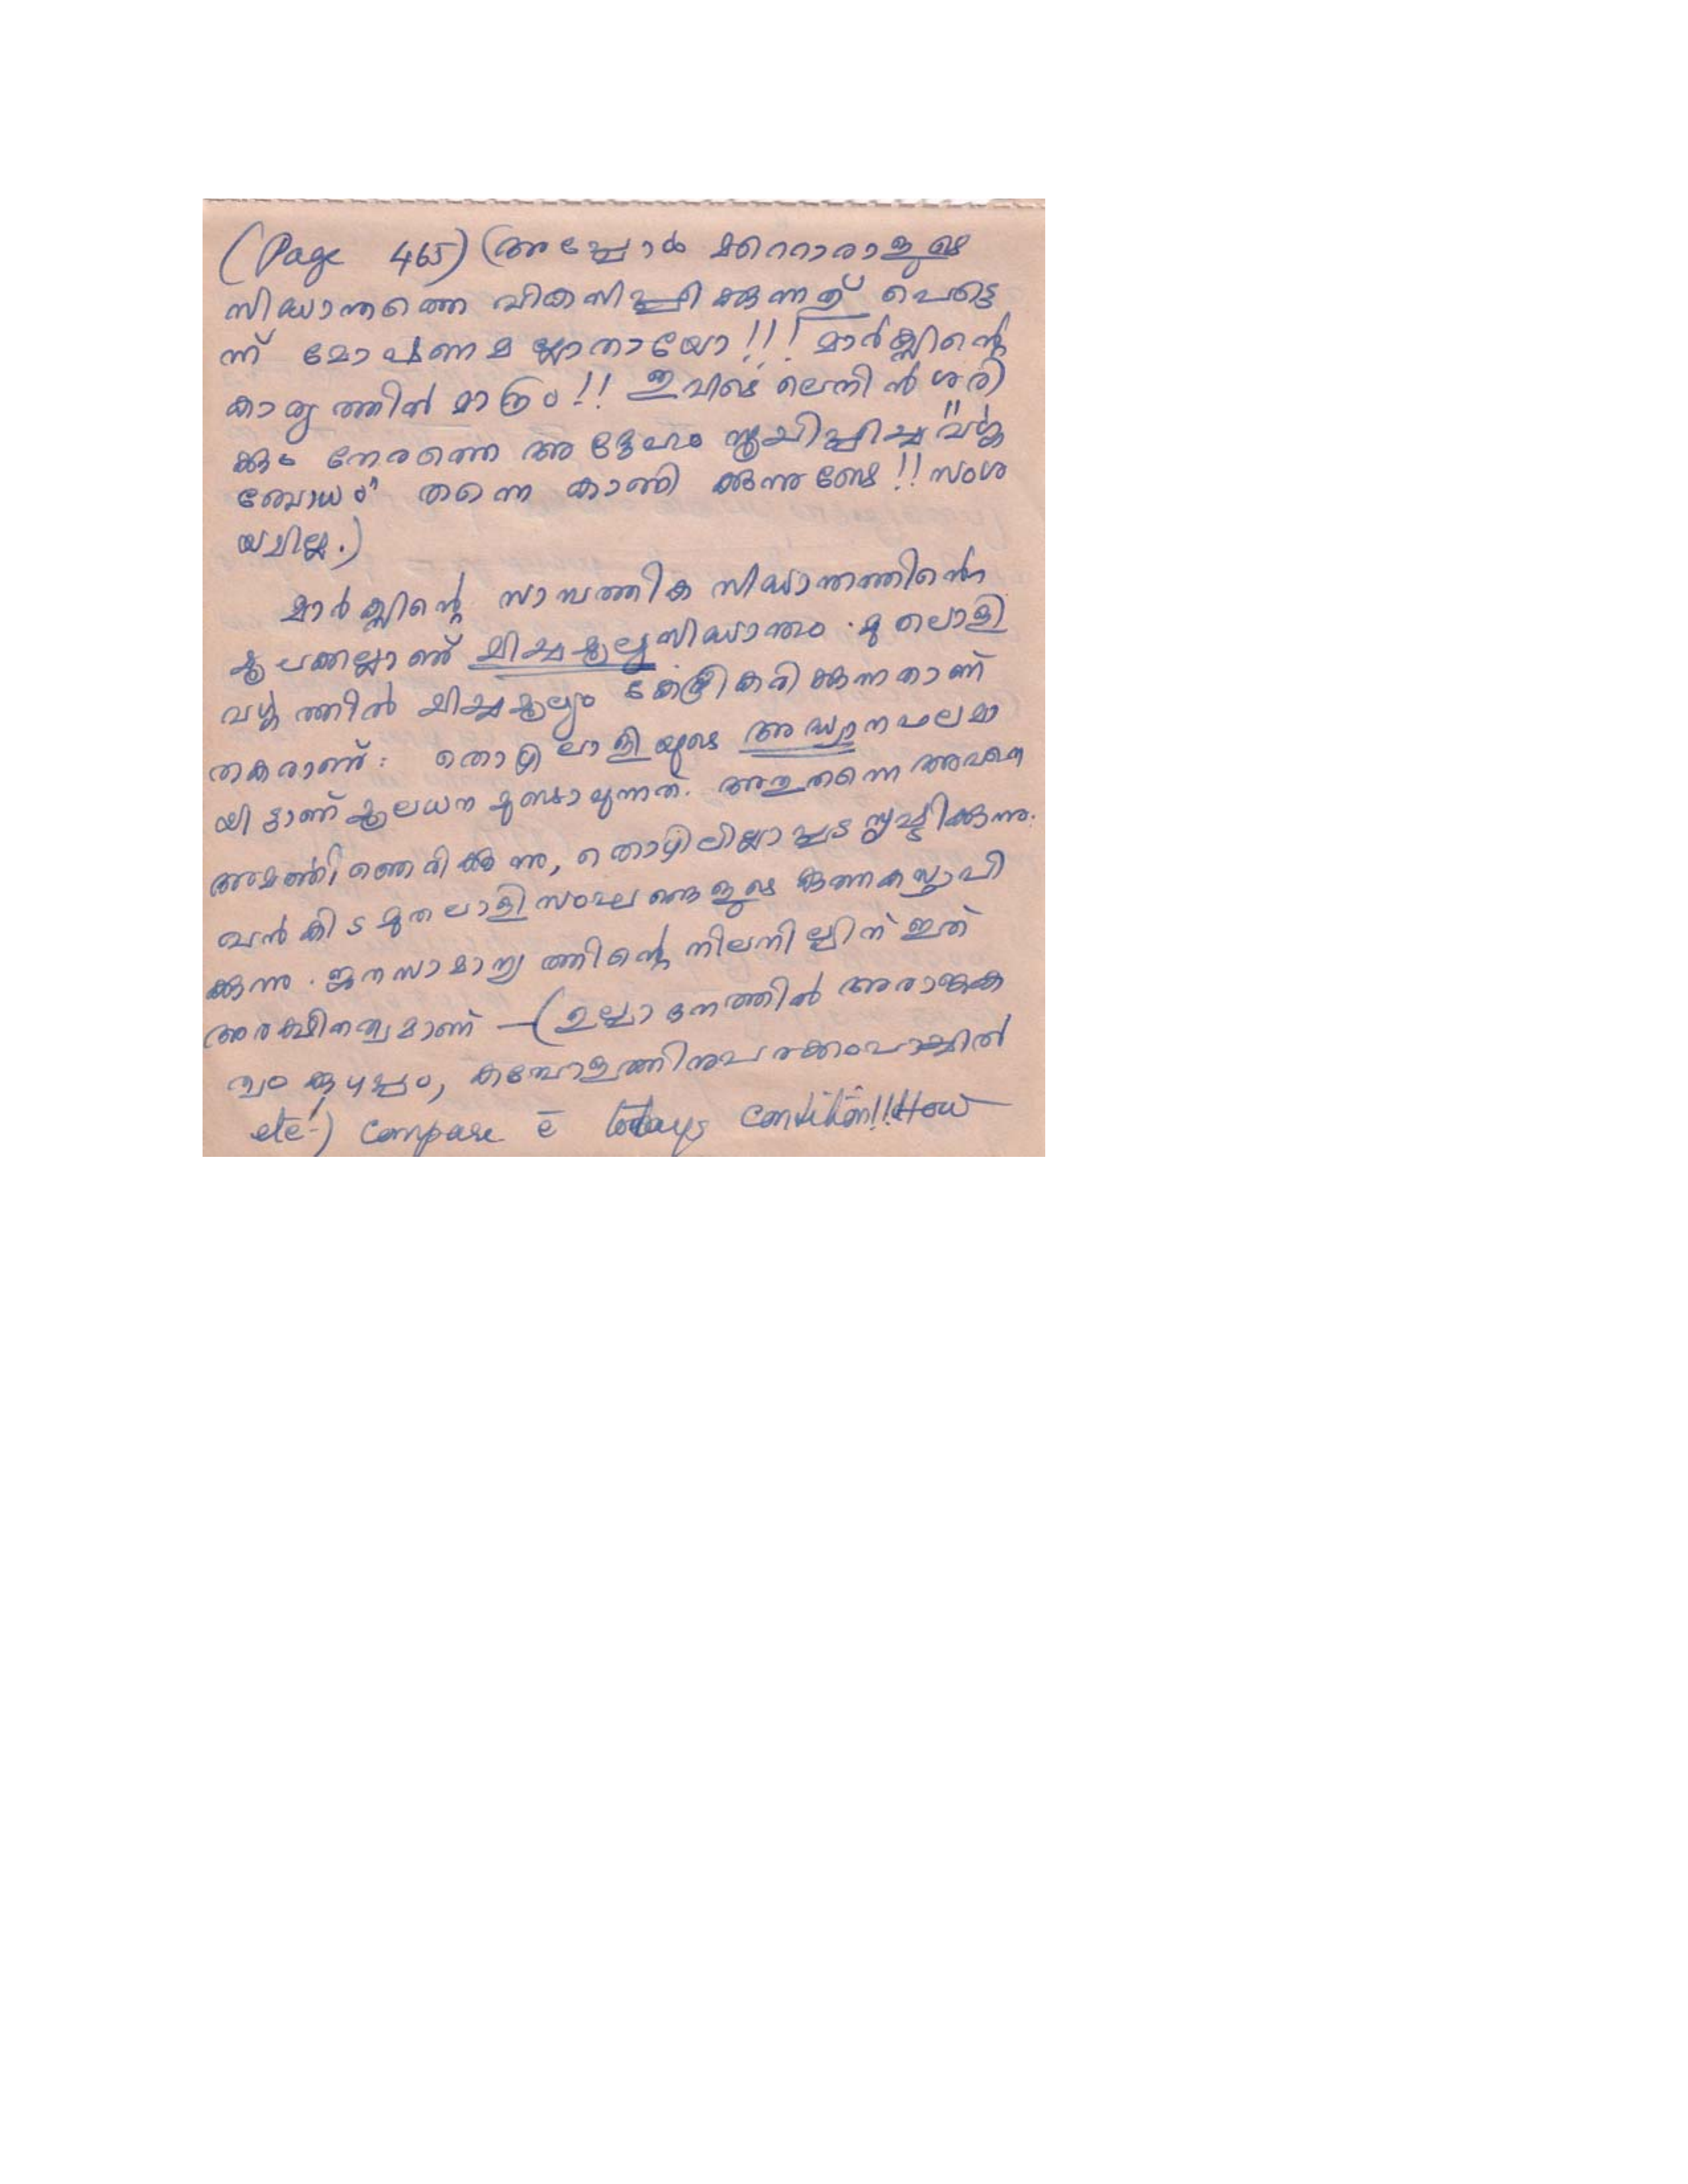 (Page 465) (അപ്പോൾ മററൊരാളുടെ
സിദ്ധാന്തത്തെ വികസിപ്പിക്കുന്നത് പെട്ടെ
ന്ന് മോഷണമല്ലാതായോ!!! മാർക്സിന്റെ
കാര്യത്തിൽ മാത്രം!! ഇവിടെ ലെനിൻ ശരി
ക്കും നേരത്തെ അദ്ദേഹം സൂചിപ്പിച്ച "വർഗ്ഗ
ബോധം" തന്നെ കാണിക്കുന്നുണ്ടേ!! സംശ
യമില്ല.)
മാർക്സിന്റെ സാമ്പത്തിക സിദ്ധാന്തത്തിന്റെ
മൂലക്കല്ലാണ് മിച്ചമൂല്യസിദ്ധാന്തം. മുതലാളി
വർഗ്ഗത്തിൽ മിച്ചമൂല്യം കേന്ദ്രീകരിക്കുന്നതാണ്
തകരാണ്: തൊഴിലാളിയുടെ അദ്ധ്വാനഫലമാ
യിട്ടാണ് മൂലധനമുണ്ടാവുന്നത്. അതുതന്നെ അവനെ
അമർത്തി ഞെരിക്കുന്നു, തൊഴിലില്ലാപ്പട സൃഷ്ടിക്കുന്നു.
വൻകിട മുതലാളി സംഘങ്ങളുടെ കുത്തക സ്ഥാപി
ക്കുന്നു. ജനസാമാന്യത്തിന്റെ നിലനില്പിന് ഇത്
അരക്ഷിതത്വമാണ് — (ഉല്പാദനത്തിൽ അരാജക
ത്വം കുഴപ്പം, കമ്പോളത്തിനുവേണ്ടി പരക്കംപാച്ചിൽ
etc!) Compare c̄ todays Condition!! How